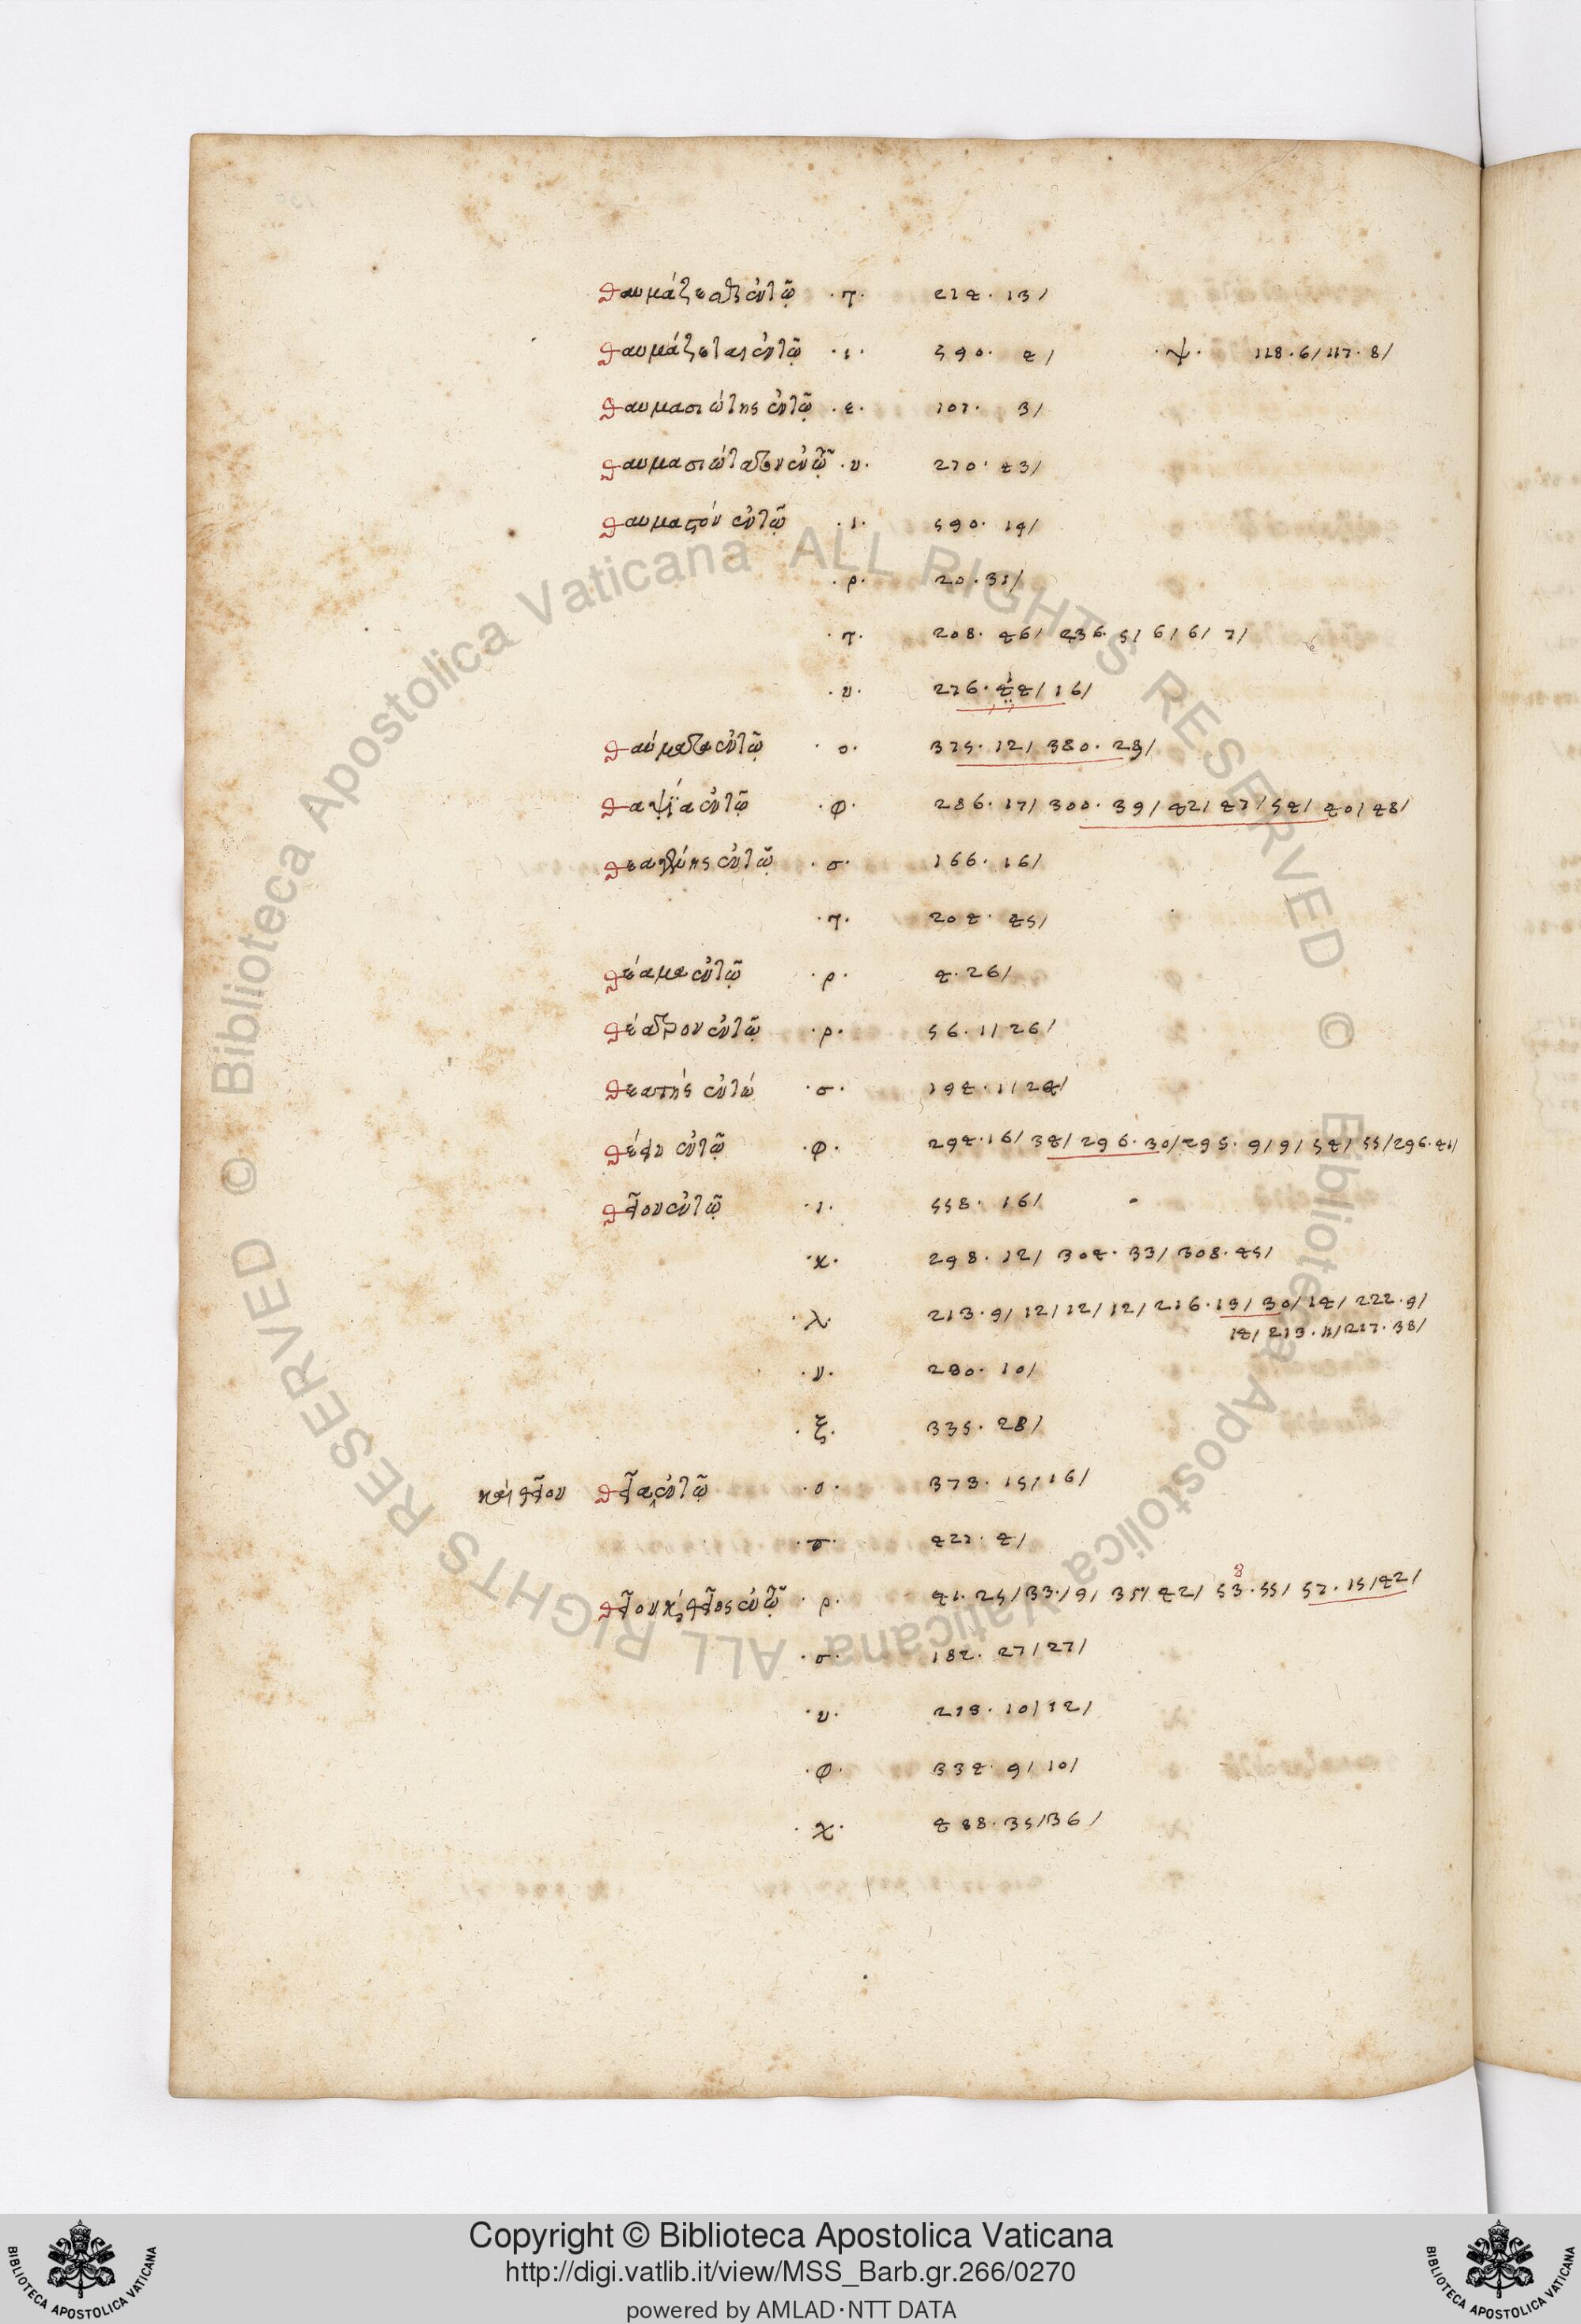 θαυμάζεσθαι ἐν τῷ ·τ· 274 · 13/
θαυμάζεται ἐν τῷ ·ι· 590 · 4/ ·ψ· 118 · 6/ 117 · 8/
θαυμασιώτης ἐν τῷ ·ε· 107 · 3/
θαυμασιώτατον ἐν τῷ ·υ· 270 · 43/
θαυμαστόν ἐν τῷ ·ι· 590 · 19/
·ρ· 20 · 31/
·τ· 208 · 46/ 236 · 5/ 6/ 6/ 7/
·υ· 276 · 44/ 16/
θαύματα ἐν τῷ ·ο· 375 · 12/ 380 · 29/
θαψία ἐν τῷ ·φ· 286 · 17/ 300 · 39/ 42/ 47/ 54/ 40/ 48/
ἐν τῷ ·σ· 166 · 16/
·τ· 204 · 45/
θέαμα ἐν τῷ ·ρ· 4 · 26/
θέατρον ἐν τῷ ·ρ· 56 · 1/ 26/
θεατής ἐν τῷ ·σ· 194 · 1/ 24/
ἐν τῷ ·φ· 294 · 16/ 34/ 296 · 30/ 295 · 9/ 9/ 54/ 55/ 296 · 41/
θεῖον ἐν τῷ ·ι· 558 · 16/
·κ· 298 · 12/ 304 · 33/ 308 · 45/
·λ· 213 · 9/ 12/ 12/ 12/ 216 · 19/ 30/ 14/ 222 · 9/
14/ 213 · 11/ 217 · 38/
·ν· 280 · 10/
·ξ· 335 · 28/
καὶ θεῖον θεῖα ἐν τῷ ·ο· 373 · 15/ 16/
·π· 421 · 4/
θεῖον καὶ θεῖος ἐν τῷ ·ρ· 41 · 25/ 33/ 9/ 35/ 42/ 53 · 55/ 57 · 15/ 42/
·σ· 182 · 27/ 27/
·υ· 213 · 10/ 12/
·φ· 334 · 9/ 10/
·χ· 488 · 35/ 36/
Copyright © Biblioteca Apostolica Vaticana
http://digi.vatlib.it/view/MSS_Barb.gr.266/0270
powered by AMLAD·NTT DATA
BIBLIOTECA APOSTOLICA VATICANA
BIBLIOTECA APOSTOLICA VATICANA
© Biblioteca Apostolica Vaticana ALL RIGHTS RESERVED
© Biblioteca Apostolica Vaticana ALL RIGHTS RESERVED